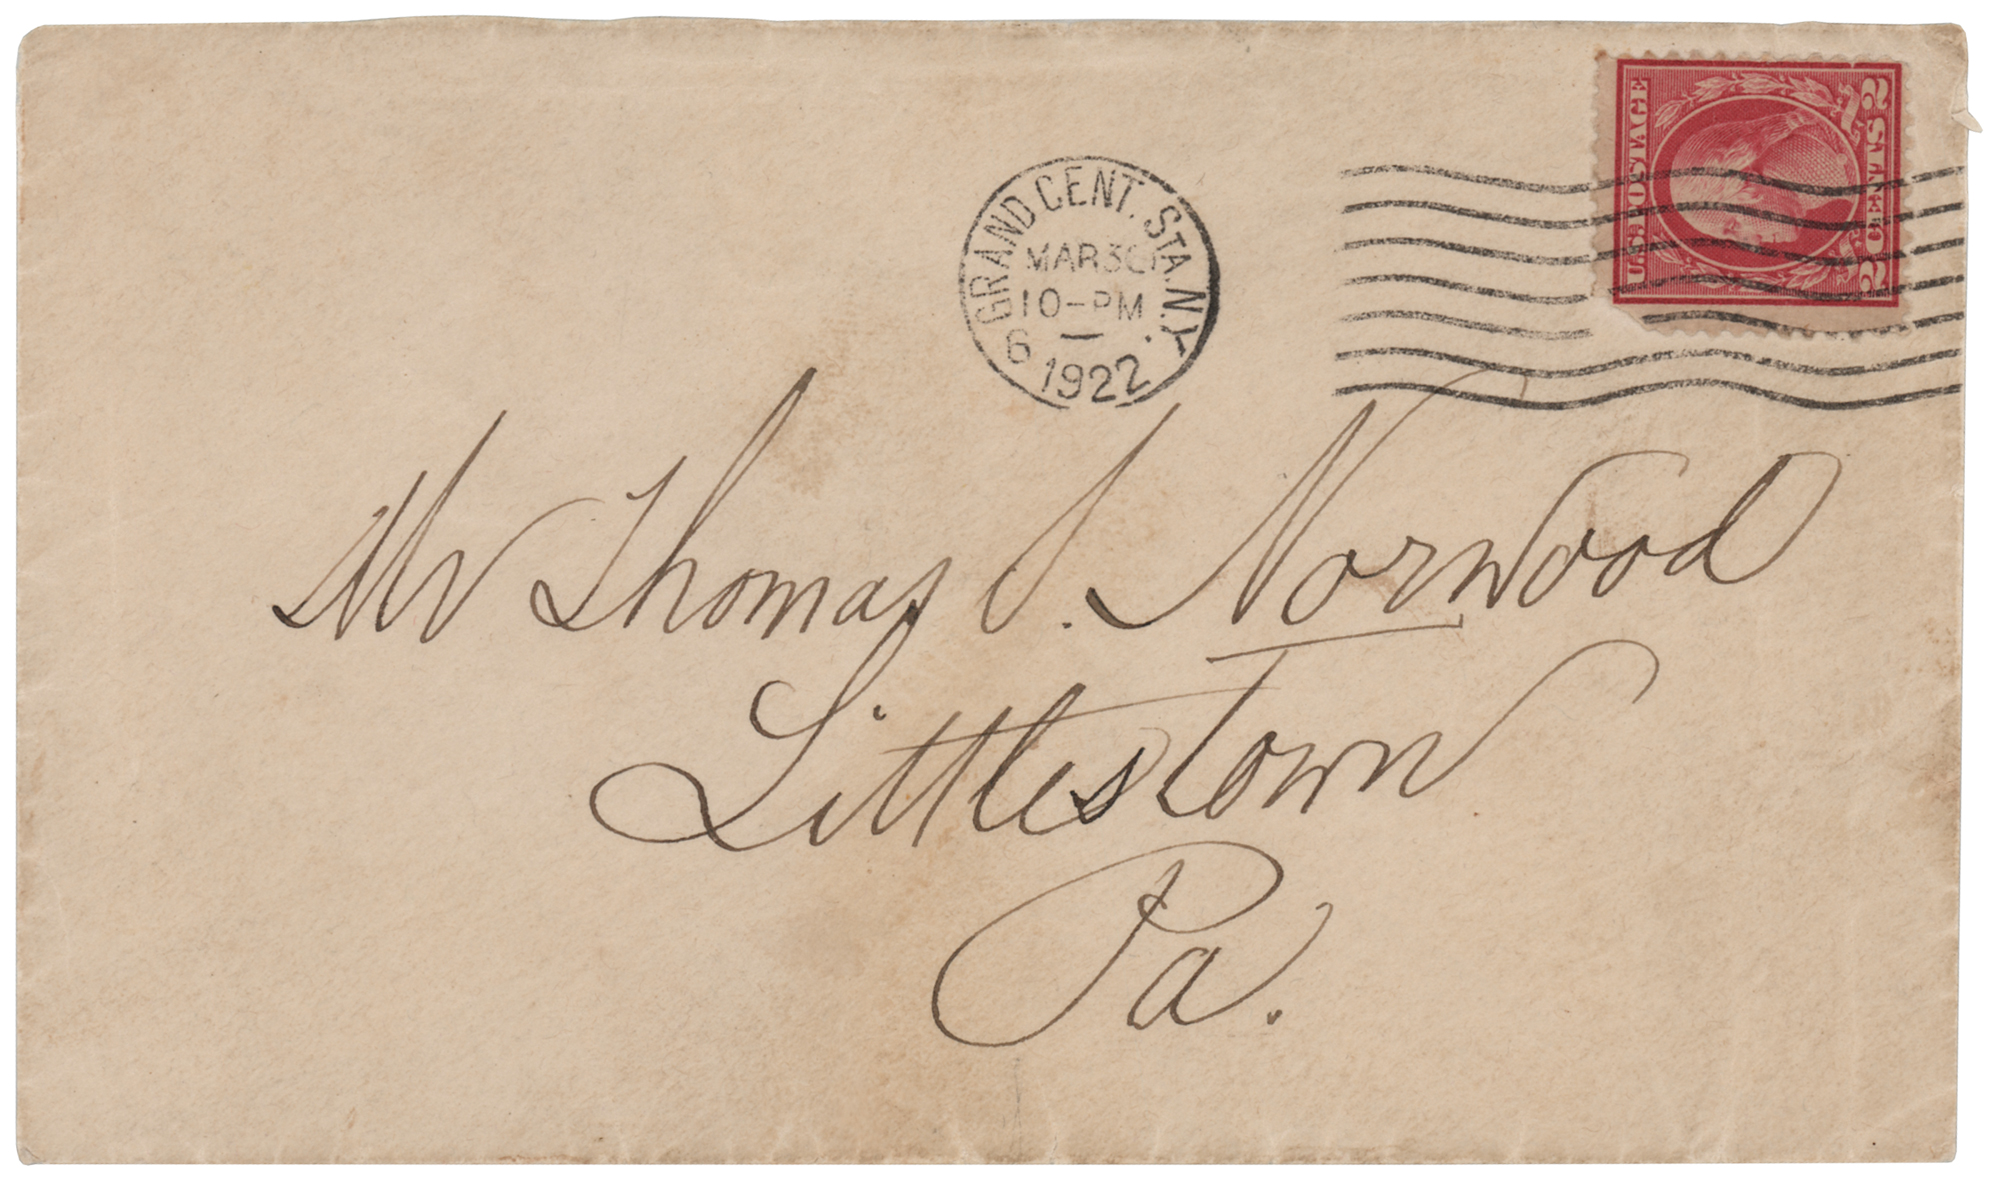 U.S. POSTAGE
2 CENTS 2
GRAND CENT. STA. N.Y.
MAR 30
10-PM
6
1922
Mr Thomas S. Norwood
Littlestown
Pa.